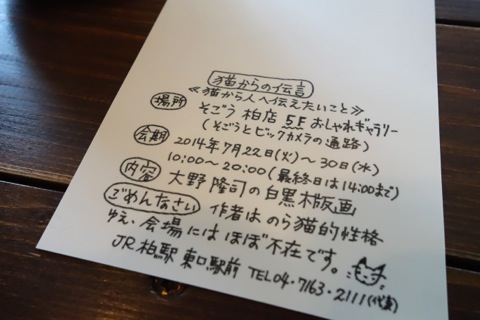 猫からの伝言
≪猫から人へ伝えたいこと≫
場所 そごう 柏店 5F おしゃれギャラリー
(そごうとビックカメラの通路)
会期 2014年7月22日(火)～30日(水)
10:00～20:00(最終日は14:00まで)
内容 大野隆司の白黒木版画
ごめんなさい 作者は のら猫的性格
ゆえ、会場には ほぼ不在です。
JR.柏駅 東口駅前 TEL04・7163・2111(代表)